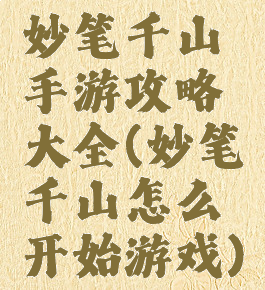 妙笔千山
手游攻略
大全(妙笔
千山怎么
开始游戏)